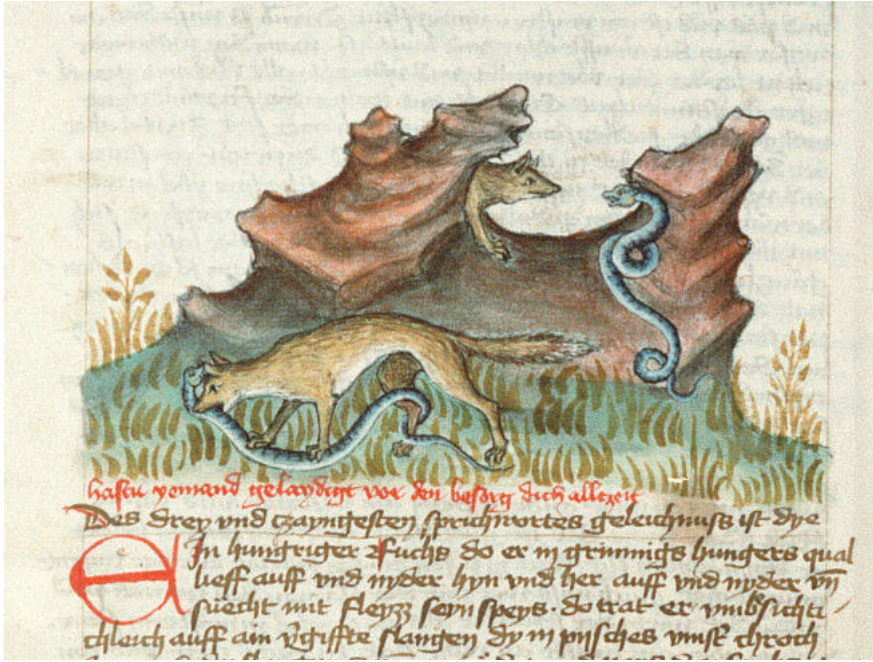 hastu yemand gelaydigt vor den besorg dich allczeit
Des drey vnd czayngesten sprichwortes geleichnuss ist dye
Ein hungriger Fuchs do er in grimmigs hungers qual
lieff auff vnd nyder hyn vnd her auff vnd nyder vñ
suecht mit fleyzz seyn speys · do trat er vmbsichti
chleich auff ain vgiffte slangen dy in pusches chroch